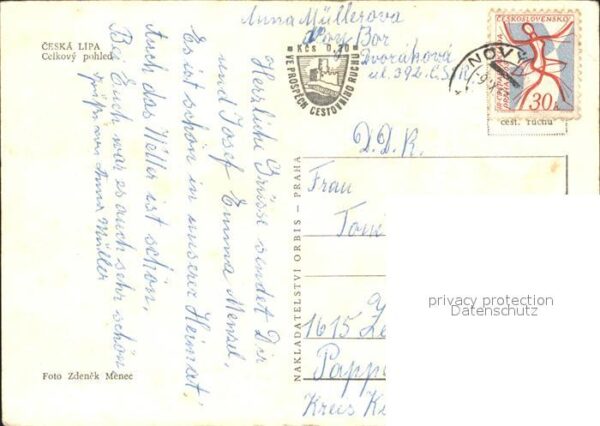 ČESKÁ LÍPA
Celkový pohled
Herzliche Grüsse sendet Dir
und Josef Emma Mensel.
Es ist schön in unserer Heimat!
Auch das Wetter ist schön.
Bei Euch war es auch sehr schön
Anna Müller
Foto Zdeněk Menec
Anna Müllerova
Nový Bor
Dvořákova
ul. 392. ČSSR
Kčs 0,20
VE PROSPĚCH CESTOVNÍHO RUCHU
NAKLADATELSTVÍ ORBIS — PRAHA
NOVÝ
ČESKOSLOVENSKO
30h
cest. ruchu
D.D.R.
Frau
Toni
privacy protection
Datenschutz
1615 Ze
Papp
Kreis K